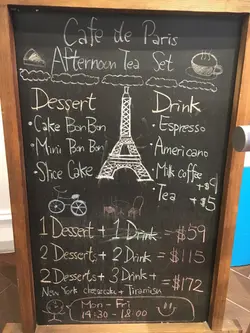 Cafe de Paris
Afternoon Tea Set
Dessert
• Cake BonBon
• Mini Bon Bon
• Slice Cake
Drink
• Espresso
• Americano
• Milk coffee +$9
• Tea +$5
1 Dessert + 1 Drink = $59
2 Desserts + 2 Drink = $115
2 Desserts + 3 Drink + = $172
New York cheesecake + Tiramisu
Mon - Fri
14:30 - 18:00